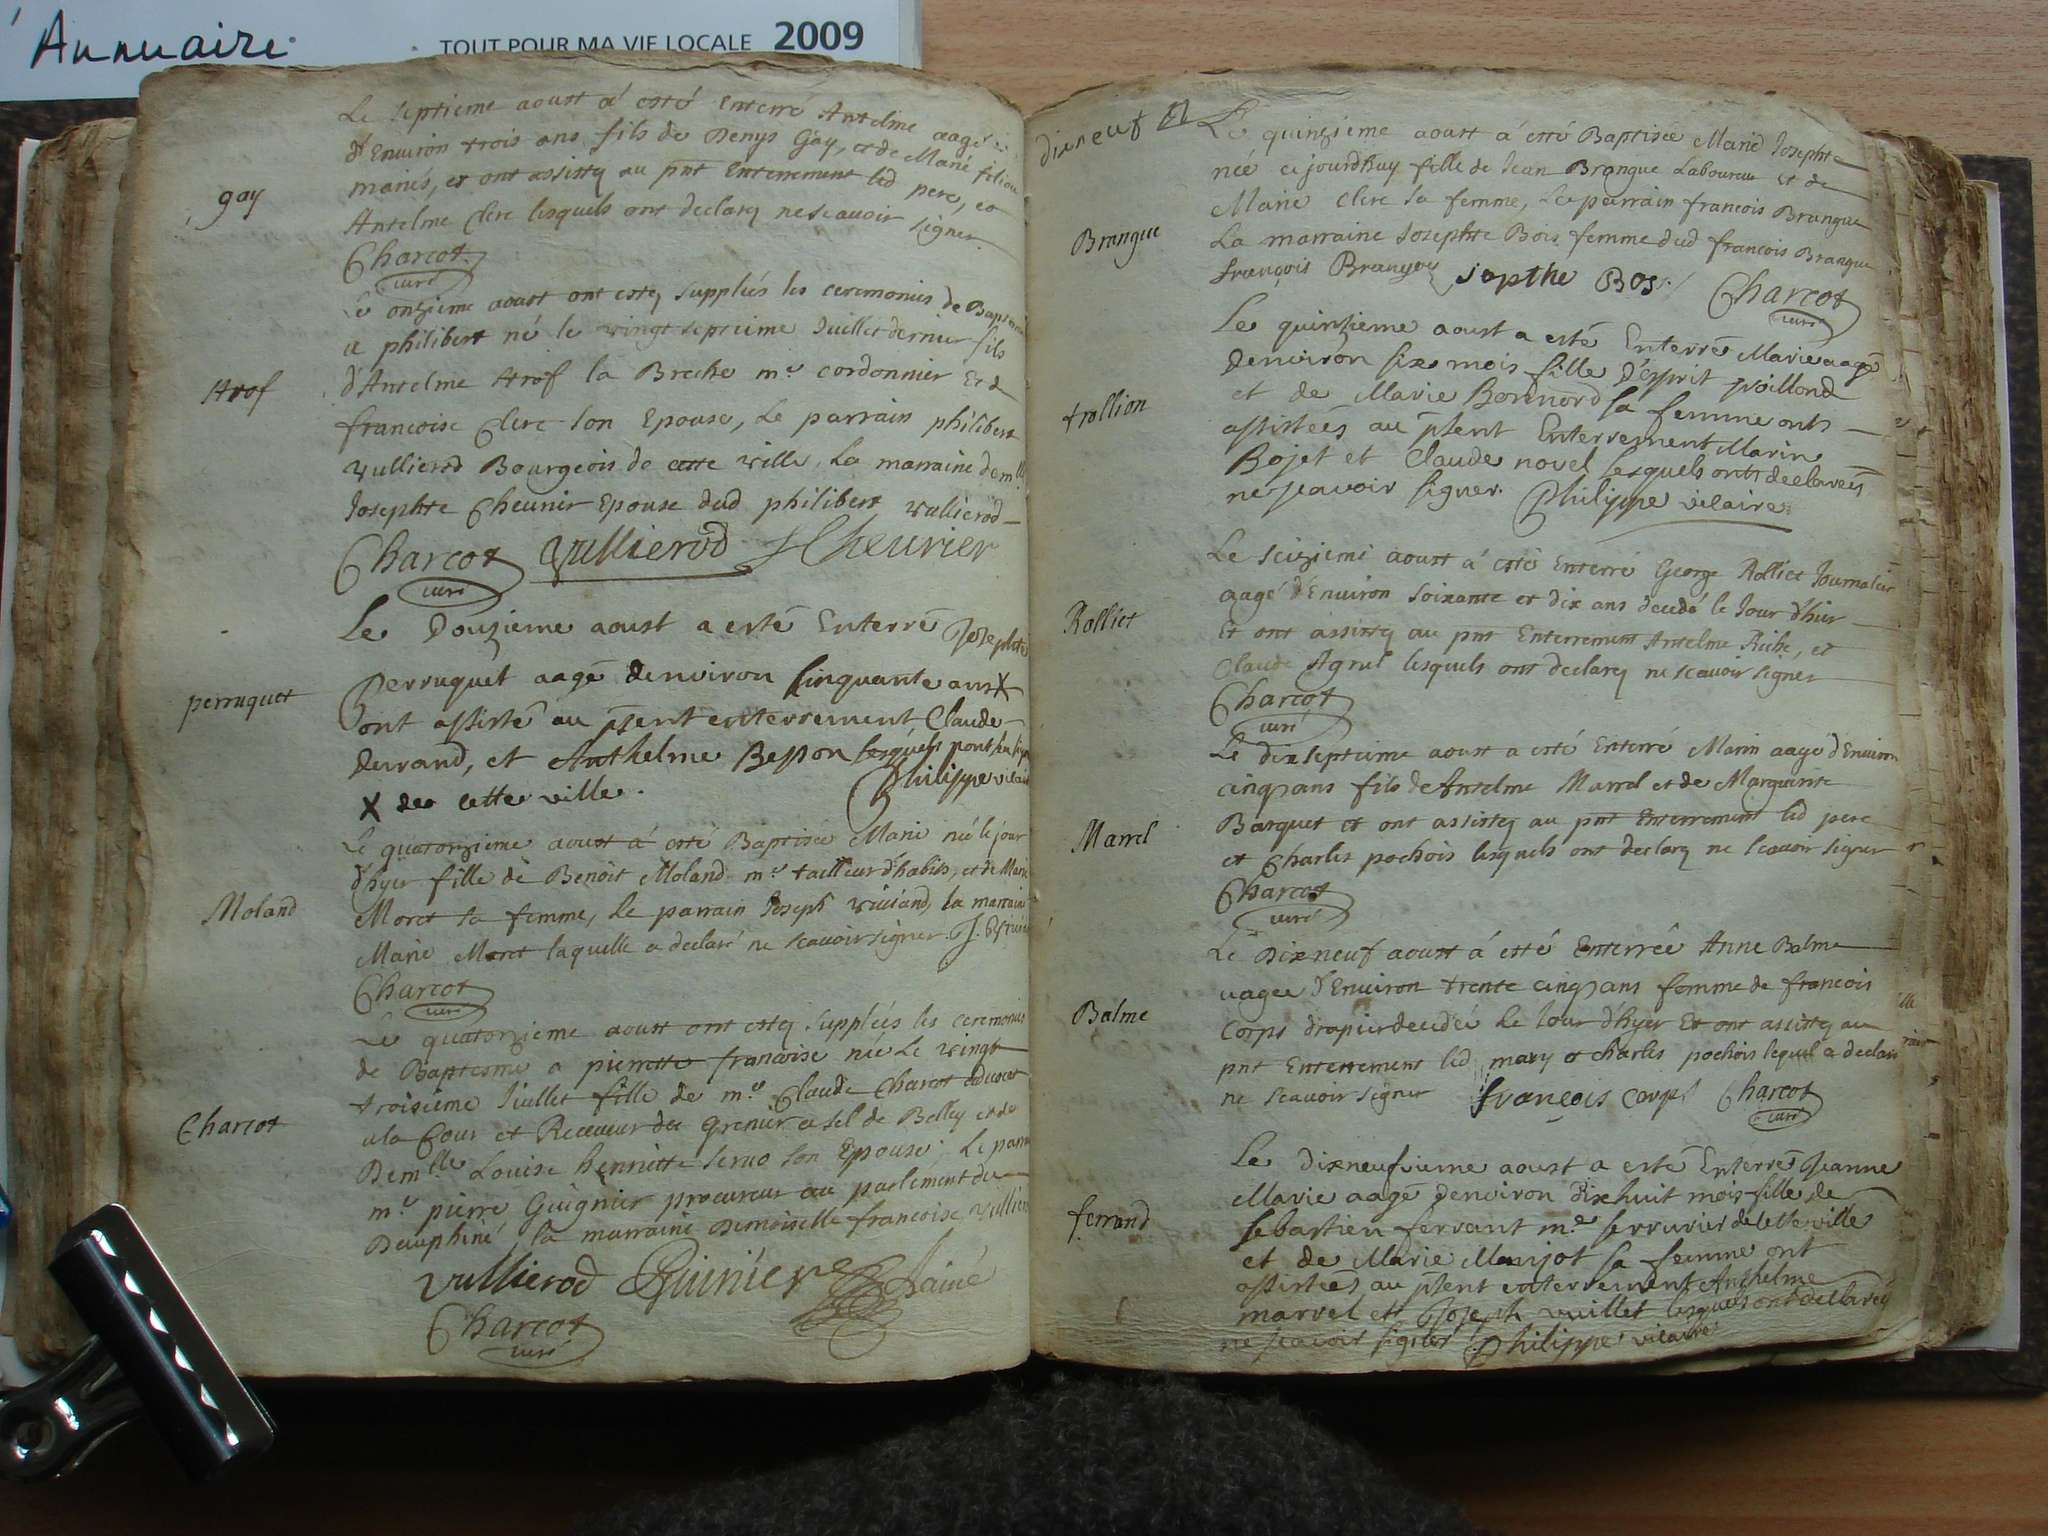 Annuaire
TOUT POUR MA VIE LOCALE 2009
Le septieme aoust a esté Enterré Antelme aagé
d'Environ trois ans fils de Denys Gay, et de Marie filion
mariés, et ont assistez au pnt Enterrement led pere, et
Antelme Clerc lesquels ont declarez ne scavoir signer.
gay
Charcot
curé
Le onzieme aoust ont estez suppliés les ceremonies de Baptesme
a philibert né le vingt septieme Juillet dernier fils
d'Antelme trof la Breche me cordonnier Et de
francoise Clerc son Epouse, Le parrain philibert
vullierod Bourgeois de cette ville, La marraine demlle
Josephte Cheurier Epouse dud philibert vullierod
trof
Charcot vullierod J Cheurier
curé
Le Douzieme aoust a esté Enterré Josephte
Perruquet aagé denviron sinquante ans X
ont assisté au psent enterrement Claude
durand, et Anthelme Besson lesquels
Philippe vicaire
X de cette ville.
perruquet
Le quatorzieme aoust a esté Baptisée Marie née le jour
d'hyer fille de Benoit Moland me tailleur d'habits, et de Marie
Moret sa femme, Le parrain Joseph viviand, la marraine
Marie Moret laquelle a declaré ne scavoir signer.
Moland
Charcot
curé
Le quatorzieme aoust ont estez suppléés les ceremonies
de Baptesme a pierrette francoise née Le vingt
troisieme Juillet fille de me Claude Charcot advocat
a la Cour et Receveur du Grenier a sel de Belley et de
Demlle Louise henriette son Epouse. Le parrain
me pierre Guignier procureur au parlement de
Dauphiné la marraine Demoiselle francoise vullierod
Charcot
vullierod
Charcot
curé
dixneuf
Le quinzieme aoust a esté Baptisée Marie Josephte
née cejourdhuy fille de Jean Brangue Laboureur et de
Marie Clerc sa femme, Le parrain francois Brangue
La marraine Josephte Bois femme dud francois Brangue
Brangue
françois Brangue jopthe Bos Charcot
curé
Le quinzieme aoust a esté Enterré Marie aagé
denviron six mois fille d'Esprit poillond
et de Marie Bonnord sa femme onts
assistées au psent Enterrement Marin
Bojet et Claude novel lesquels onts declarées
ne scavoir signer. Philippe vicaire
trollion
Le seizieme aoust a esté Enterré George Rolliet Journalier
aagé d'Environ soixante et dix ans decedé le Jour d'hier
Et ont assistez au pnt Enterrement Antelme Riche, et
Claude Agrul lesquels ont declarez ne scavoir signer
Rolliet
Charcot
curé
Le dixseptieme aoust a esté Enterré Marin aagé d'Environ
cinq ans fils de Antelme Marrel et de Marguerite
Barquet et ont assistez au pnt Enterrement led pere
et Charles pochois lesquels ont declarez ne scavoir signer
Marrel
Charcot
curé
Le Dixneuf aoust a esté Enterrée Anne Balme
aagee d'Environ trente cinq ans femme de francois
Corps drapier decedée Le Jour d'hyer Et ont assistez au
pnt Enterrement led mary et charles pochois lequel a declaré
ne scavoir signer françois corps Charcot
curé
Balme
Le dixneufvieme aoust a esté Enterré Jeanne
Marie aagé denviron dixhuit mois fille de
sebastien ferrant me serrurier de cette ville
et de Marie Manjot sa femme ont
assistées au psent enterrement Anthelme
marrel et Joseph vuillet lesquels ont declarez
ne scavoir signer Philippe vicaire
ferrand